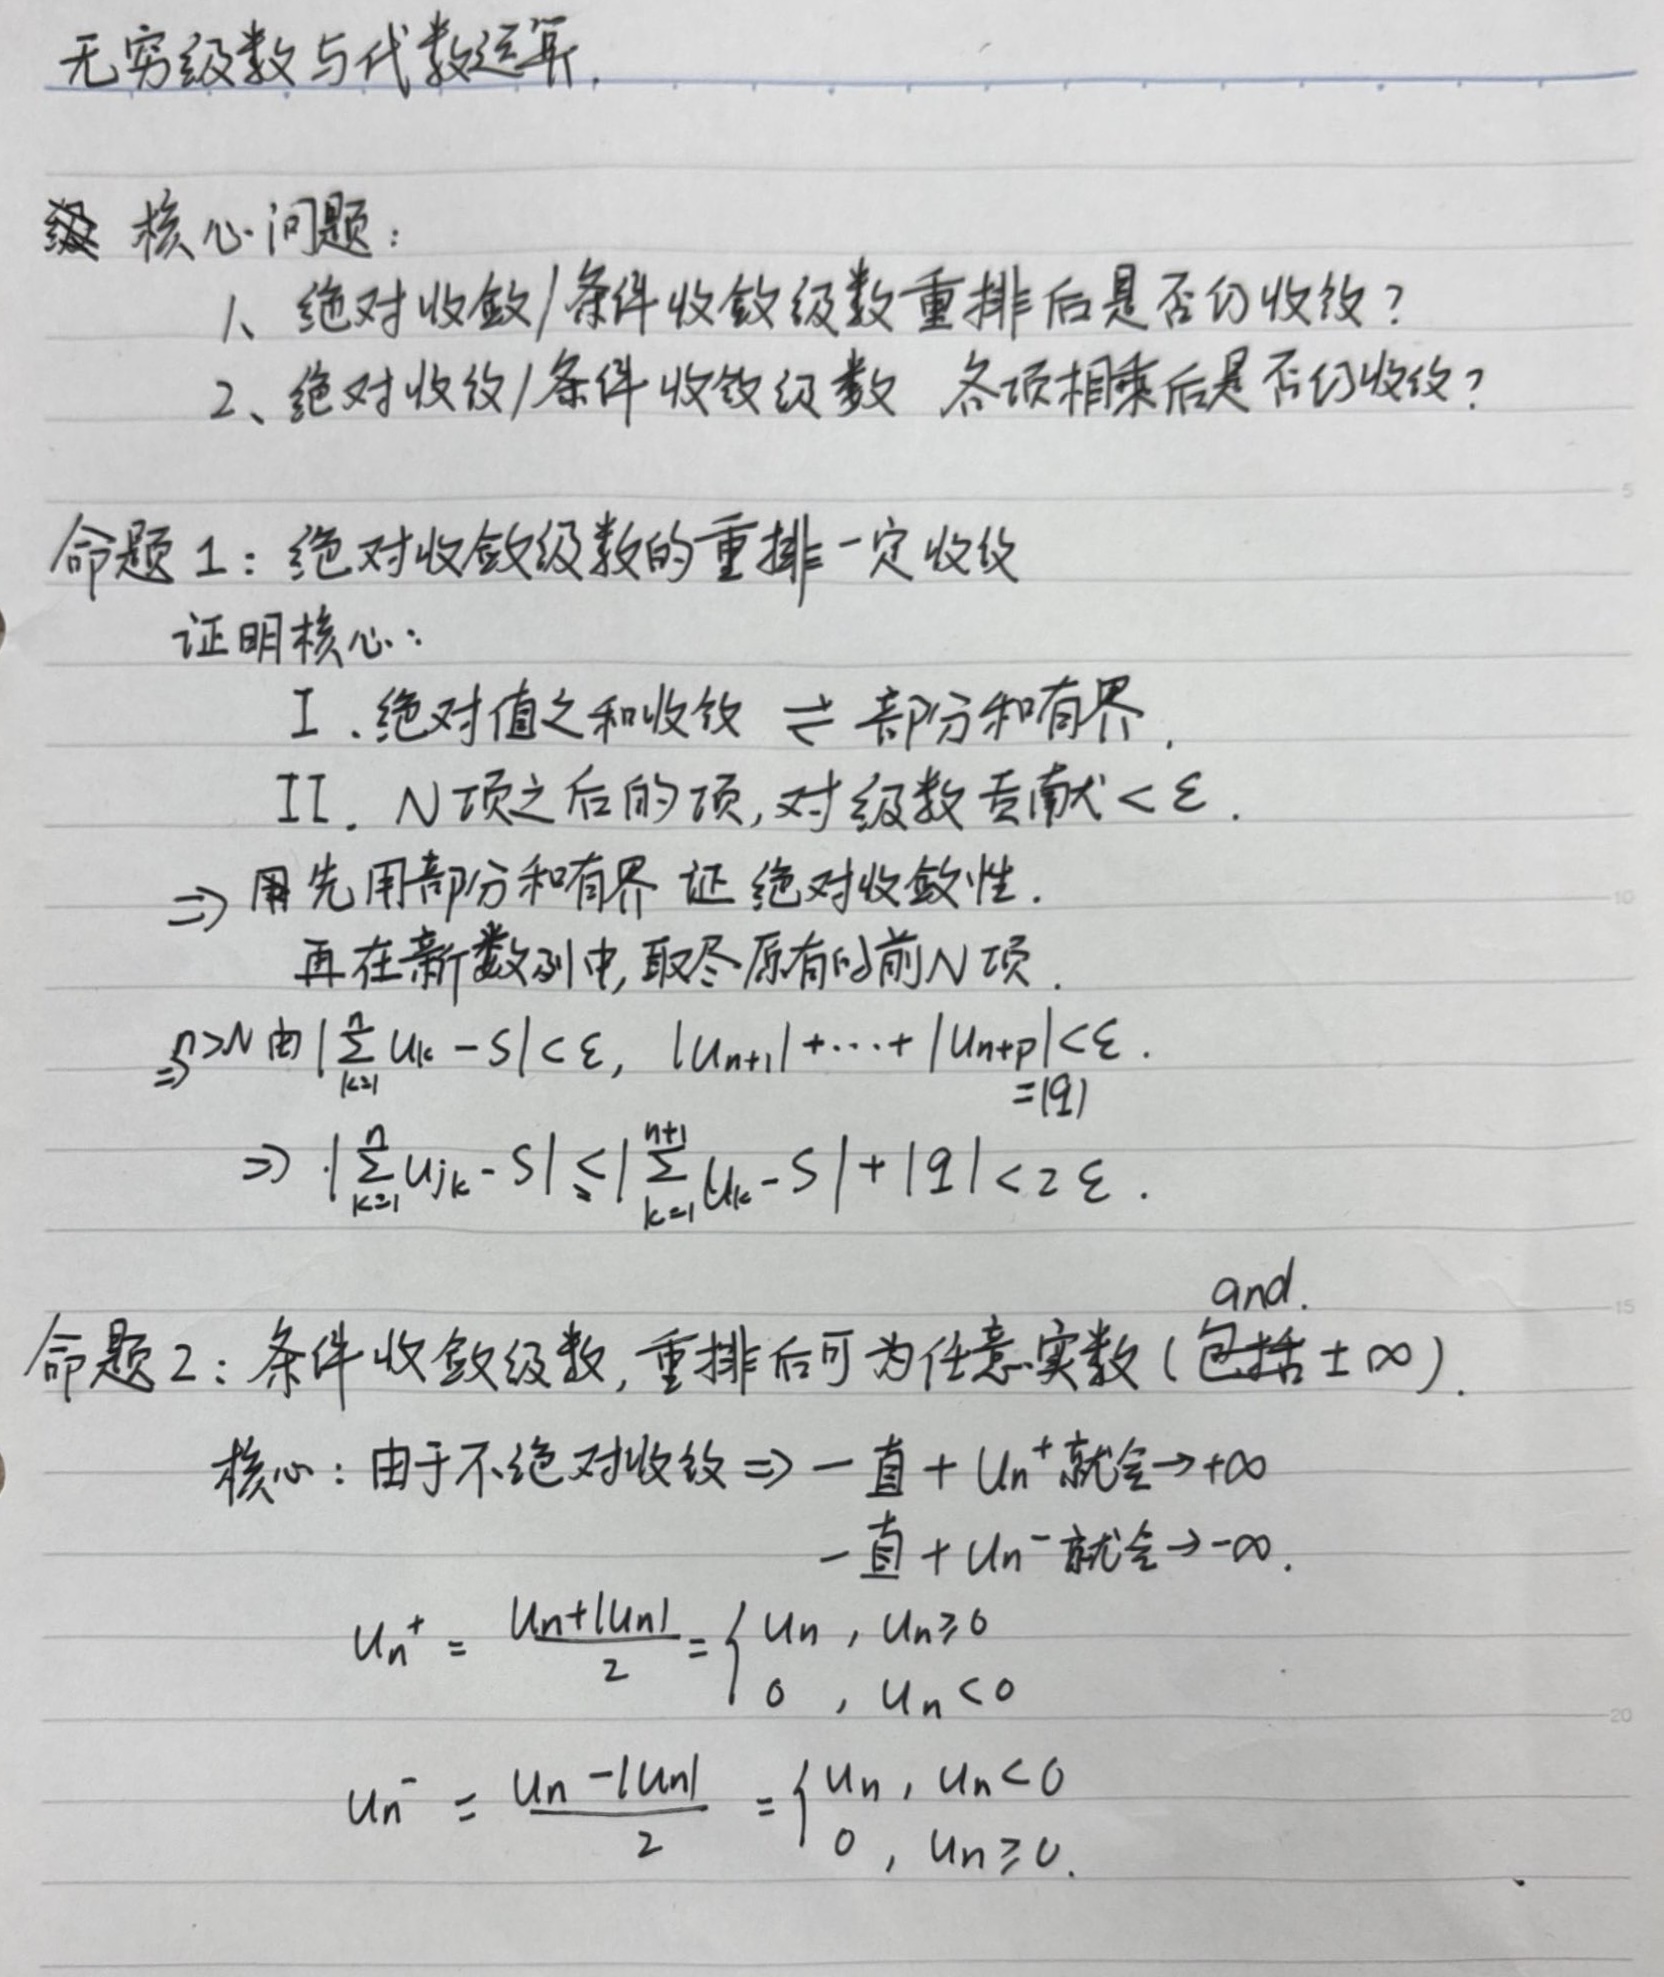 无穷级数与代数运算.
核心问题:
1、绝对收敛/条件收敛级数重排后是否仍收敛?
2、绝对收敛/条件收敛级数 各项相乘后是否仍收敛?
5
命题1: 绝对收敛级数的重排一定收敛
证明核心:
I. 绝对值之和收敛 ⇌ 部分和有界.
II. N项之后的项, 对级数贡献<ε.
10
⇒ 先用部分和有界 证 绝对收敛性.
再在新数列中, 取尽原有的前N项.
⇒ n>N 由 |∑_{k=1}^{n} u_k - S| < ε, |u_{n+1}| + ⋯ + |u_{n+p}| < ε.
= |q|
⇒ |∑_{k=1}^{n} u_{j_k} - S| ≤ |∑_{k=1}^{n+1} u_k - S| + |q| < 2ε.
and.
15
命题2: 条件收敛级数, 重排后可为任意实数 (包括±∞).
核心: 由于不绝对收敛 ⇒ 一直 + u_n^+ 就会→+∞
一直 + u_n^- 就会→-∞.
u_n^+ = (u_n+|u_n|)/2 = { u_n, u_n≥0
0, u_n<0
20
u_n^- = (u_n-|u_n|)/2 = { u_n, u_n<0
0, u_n≥0.